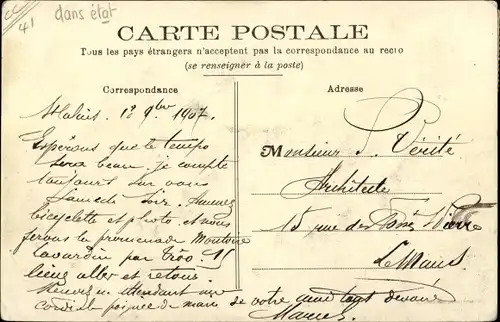 41
dans état
CARTE POSTALE
Tous les pays étrangers n'acceptent pas la correspondance au recto
(se renseigner à la poste)
Correspondance
Adresse
St Calais. 18 9bre 1907.
Espérons que le temps
sera beau. je compte
toujours sur vous
Samedi soir. Amenez
bicyclette et photo. et nous
ferons la promenade Montoire
Lavardin par Tròo. 15
lieues aller et retour.
en attendant une
cordiale poignée de main de votre ami tout dévoué
Monsieur P. Vérité
Architecte
15 rue des
Le Mans